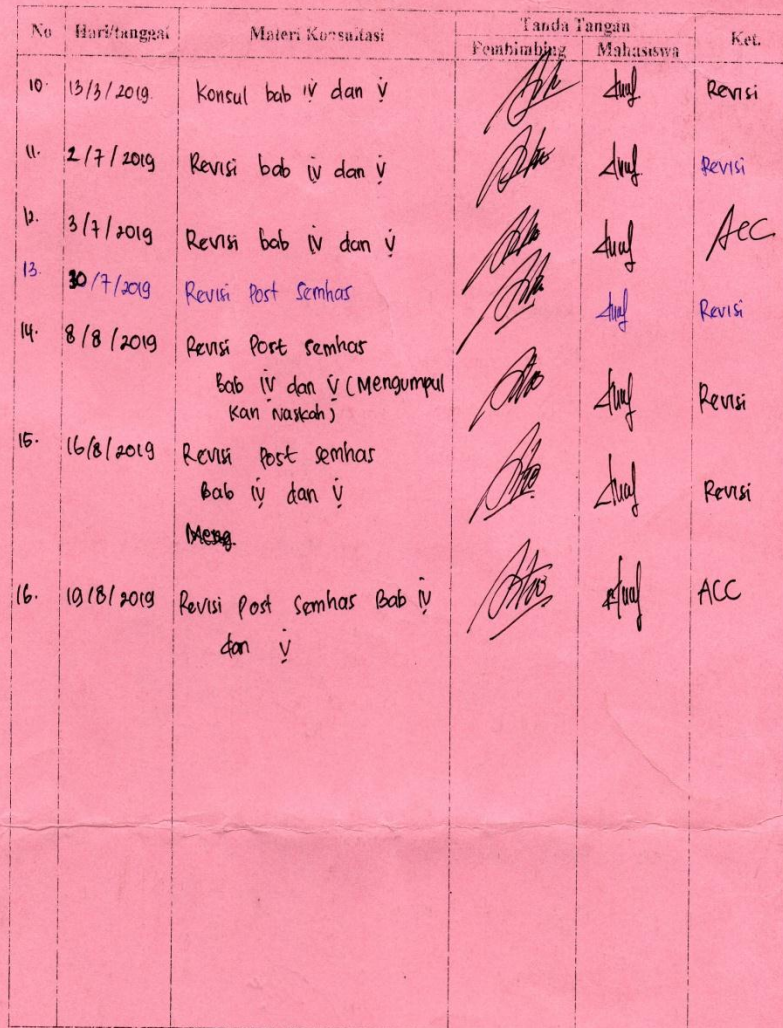 No Hari/tanggal Materi Konsultasi Tanda Tangan Ket.
Pembimbing Mahasiswa
10. 13/3/2019. Konsul bab iv dan v Revisi
11. 2/7/2019 Revisi bab iv dan v Revisi
12. 3/7/2019 Revisi bab iv dan v Acc
13. 30/7/2019 Revisi Post Semhas Revisi
14. 8/8/2019 Revisi Post semhas
Bab iv dan v (Mengumpul
kan Naskah) Revisi
15. 16/8/2019 Revisi Post semhas
Bab iv dan v Revisi
16. 19/8/2019 Revisi Post Semhas Bab iv ACC
dan v